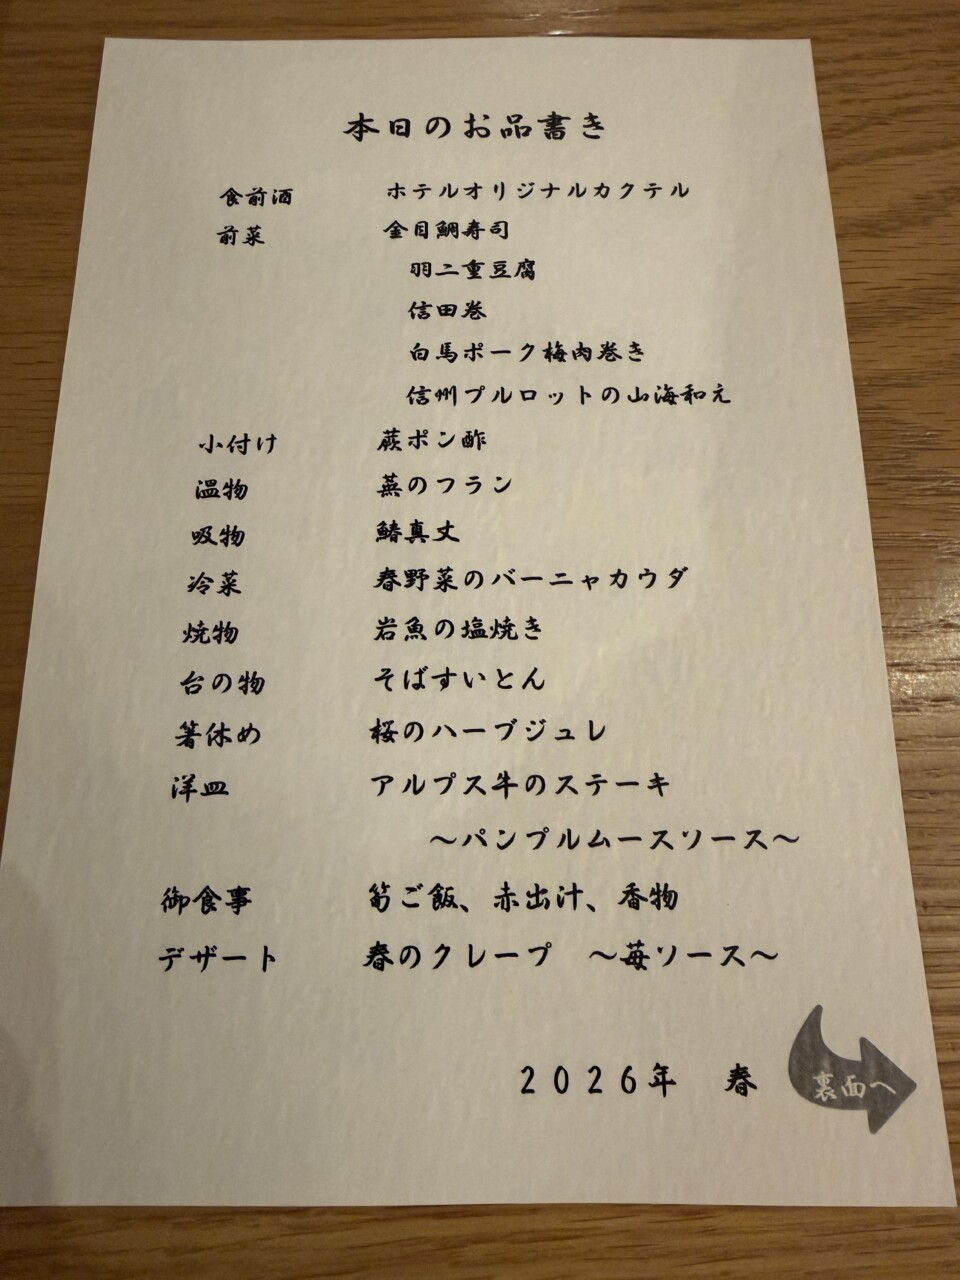 本日のお品書き
食前酒 ホテルオリジナルカクテル
前菜 金目鯛寿司
羽二重豆腐
信田巻
白馬ポーク梅肉巻き
信州プルロットの山海和え
小付け 蕨ポン酢
温物 蕪のフラン
吸物 鰆真丈
冷菜 春野菜のバーニャカウダ
焼物 岩魚の塩焼き
台の物 そばすいとん
箸休め 桜のハーブジュレ
洋皿 アルプス牛のステーキ
～パンプルムースソース～
御食事 筍ご飯、赤出汁、香物
デザート 春のクレープ ～苺ソース～
2026年 春
裏面へ